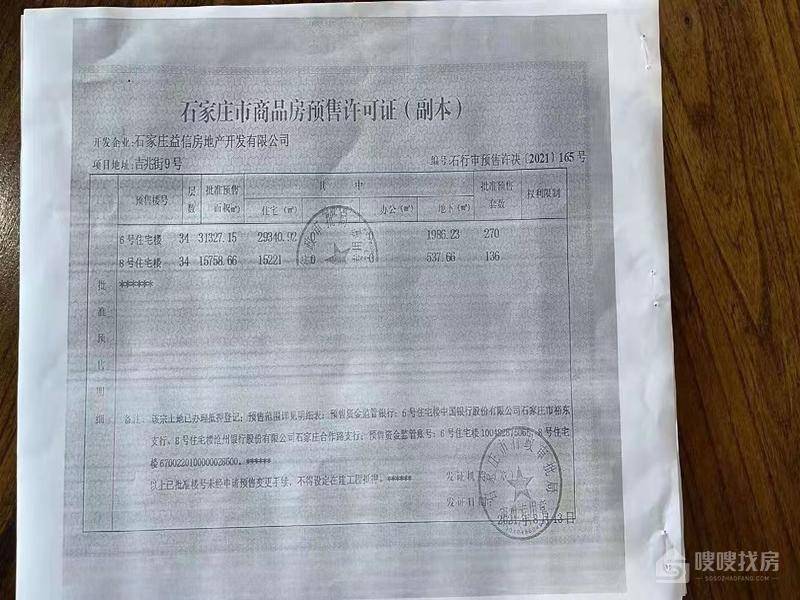 石家庄市商品房预售许可证（副本）
开发企业:石家庄益信房地产开发有限公司
项目地址:吉兆街9号 编号:石行审预售许决〔2021〕165号
预售楼号 层数 批准预售面积㎡ 其中 批准预售套数 权利限制
住宅（㎡） 办公（㎡） 地下（㎡）
6号住宅楼 34 31327.15 29340.92 1986.23 270
8号住宅楼 34 15758.66 15221 0 537.66 136
******
批准预售明细
备注: 该宗土地已办理抵押登记；预售范围详见明细表；预售资金监管银行：6号住宅楼中国银行股份有限公司石家庄市裕东
支行，8号住宅楼沧州银行股份有限公司石家庄合作路支行；预售资金监管账号：6号住宅楼 8号住宅
楼 ******
以上已批准楼号未经申请预售变更手续，不得设定在建工程抵押。******
发证机关
发证日期
2021年8月13日
嗖嗖找房
SOSOZHAOFANG.COM